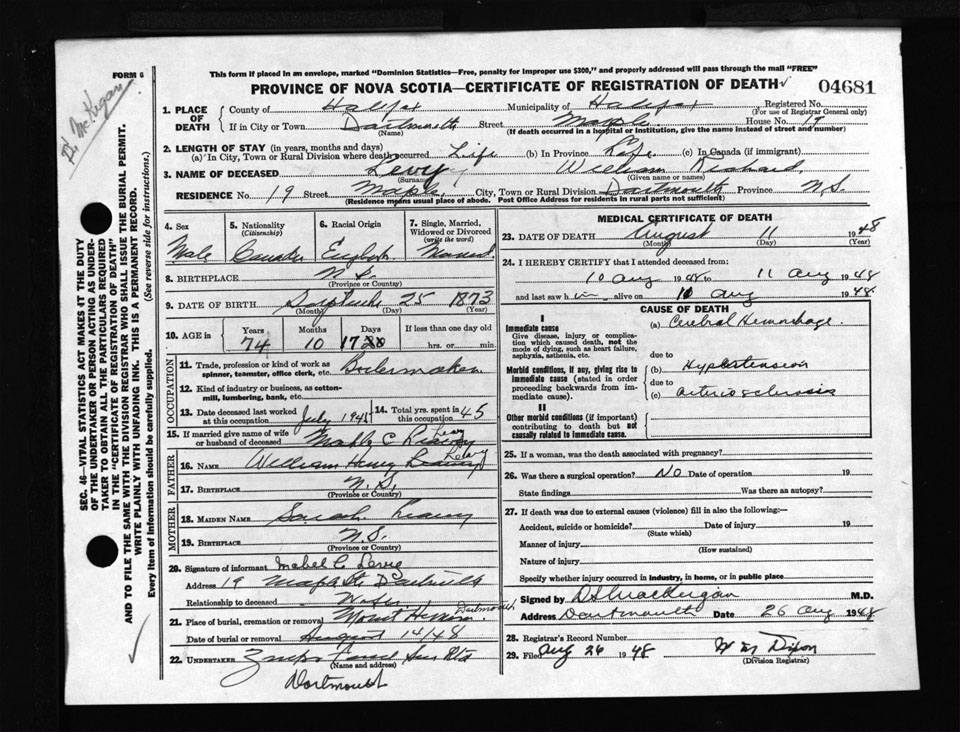 FORM 6
D. McKegan
This form if placed in an envelope, marked "Dominion Statistics—Free, penalty for improper use $300," and properly addressed will pass through the mail "FREE"
PROVINCE OF NOVA SCOTIA—CERTIFICATE OF REGISTRATION OF DEATH
04681
SEC. 46—VITAL STATISTICS ACT MAKES IT THE DUTY
OF THE UNDERTAKER OR PERSON ACTING AS UNDER-
TAKER TO OBTAIN ALL THE PARTICULARS REQUIRED
IN THE "CERTIFICATE OF REGISTRATION OF DEATH"
AND TO FILE THE SAME WITH THE DIVISION REGISTRAR WHO SHALL ISSUE THE BURIAL PERMIT.
WRITE PLAINLY WITH UNFADING INK. THIS IS A PERMANENT RECORD.
Every item of Information should be carefully supplied. (See reverse side for instructions.)
1. PLACE OF DEATH
County of Halifax Municipality of Halifax Registered No.
(For use of Registrar General only)
If in City or Town Dartmouth Street Maple House No. 19
(Name) (If death occurred in a hospital or institution, give the name instead of street and number)
2. LENGTH OF STAY (in years, months and days)
(a) In City, Town or Rural Division where death occurred Life (b) In Province Life (c) In Canada (if immigrant)
3. NAME OF DECEASED Levy William Richard
(Surname) (Given name or names)
RESIDENCE No. 19 Street Maple City, Town or Rural Division Dartmouth Province N.S.
(Residence means usual place of abode. Post Office Address for residents in rural parts not sufficient)
4. Sex Male
5. Nationality (Citizenship) Canada
6. Racial Origin English
7. Single, Married, Widowed or Divorced (write the word) Married
8. BIRTHPLACE N.S.
(Province or Country)
9. DATE OF BIRTH September 25 1873
(Month) (Day) (Year)
10. AGE in Years 74 Months 10 Days 17 20 If less than one day old hrs. or min.
OCCUPATION
11. Trade, profession or kind of work as spinner, teamster, office clerk, etc. Boilermaker
12. Kind of industry or business, as cotton-mill, lumbering, bank, etc.
13. Date deceased last worked at this occupation July 194
14. Total yrs. spent in this occupation 45
15. If married give name of wife or husband of deceased C Levy
FATHER
16. NAME William Henry Levy
17. BIRTHPLACE N.S.
(Province or Country)
MOTHER
18. MAIDEN NAME Sarah
19. BIRTHPLACE N.S.
(Province or Country)
20. Signature of informant Mabel C. Levie
Address 19 Maple St. Dartmouth
Relationship to deceased Wife
21. Place of burial, cremation or removal Mount Hermon Dartmouth
Date of burial or removal August 14/48
22. UNDERTAKER Sons Ltd
(Name and address)
Dartmouth
MEDICAL CERTIFICATE OF DEATH
23. DATE OF DEATH August 11 1948
(Month) (Day) (Year)
24. I HEREBY CERTIFY that I attended deceased from:
10 Aug 1948 to 11 Aug 1948
and last saw him alive on 10 Aug 1948
CAUSE OF DEATH
I
Immediate cause
Give disease, injury or complication which caused death, not the mode of dying, such as heart failure, asphyxia, asthenia, etc.
(a) Cerebral Hemorrhage.
due to
Morbid conditions, if any, giving rise to immediate cause (stated in order proceeding backwards from immediate cause).
(b) Hypertension
due to
(c) arteriosclerosis
II
Other morbid conditions (if important) contributing to death but not causally related to immediate cause.
25. If a woman, was the death associated with pregnancy?
26. Was there a surgical operation? No Date of operation 19
State findings Was there an autopsy?
27. If death was due to external causes (violence) fill in also the following:—
Accident, suicide or homicide? Date of injury 19
(State which)
Manner of injury
(How sustained)
Nature of injury
Specify whether injury occurred in industry, in home, or in public place
Signed by D. MacKeigan M.D.
Address Dartmouth Date 26 Aug 1948
28. Registrar's Record Number
29. Filed Aug 26 1948 Dixon
(Division Registrar)